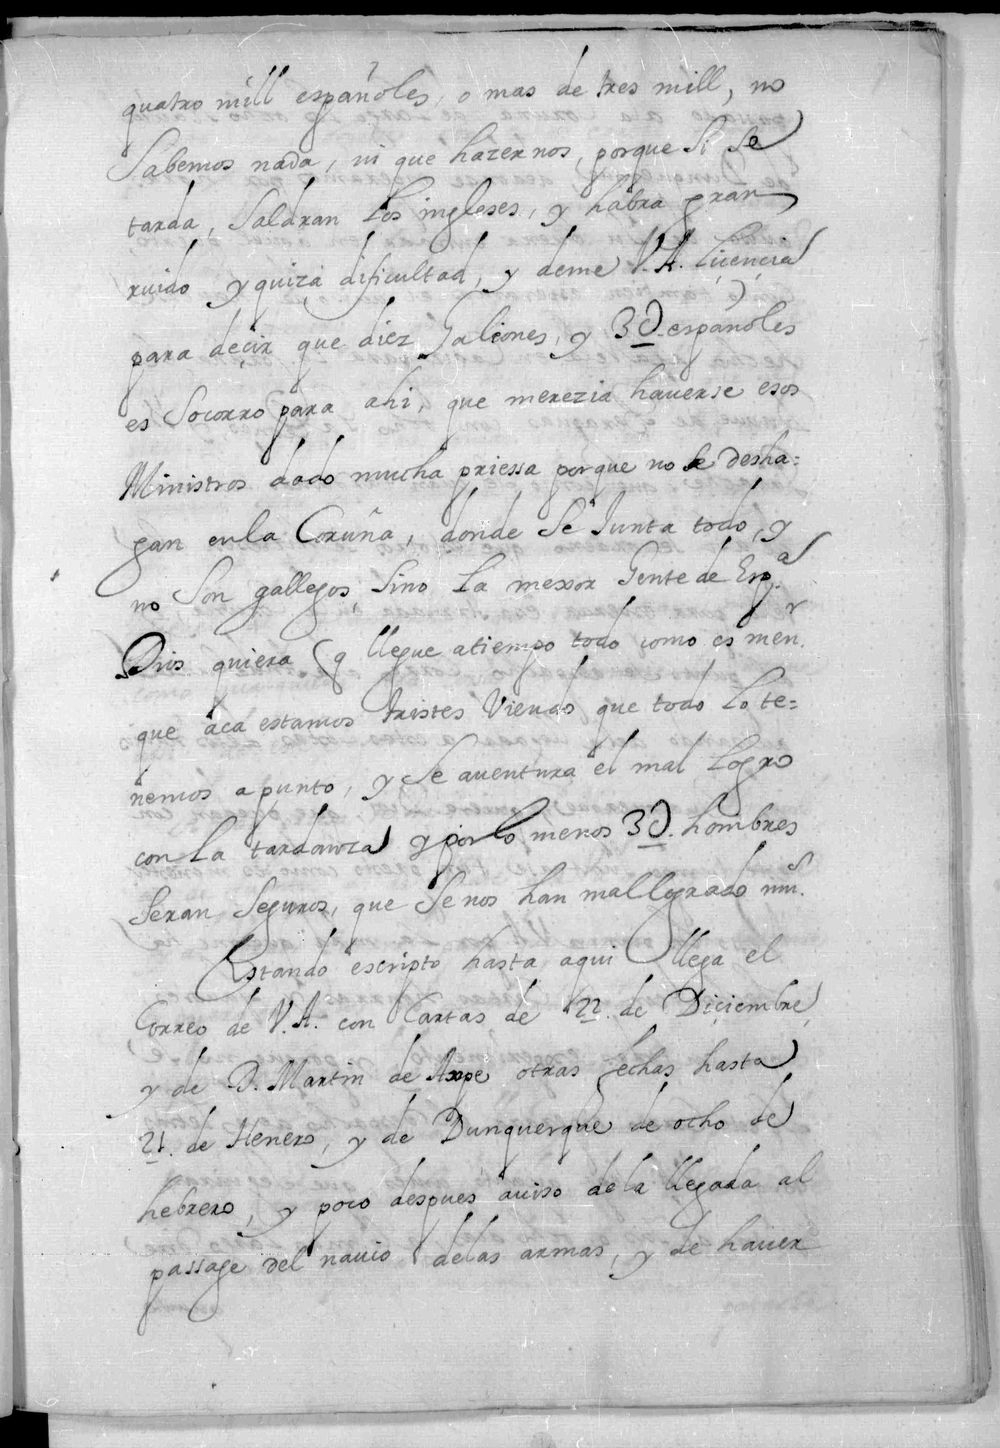 quatro mill españoles, o mas de tres mill, no
Sabemos nada, ni que hazernos, porque Si se
tarda, Saldran los ingleses, y habra gran
ruido y quiza dificultad, y deme V. A. liçençia
para deçir que diez Galeones, y 3U españoles
es Socorro para ahi, que merezia hauerse esos
Ministros dado mucha priessa porque no se desha=
gan en la Coruña, donde Se Junta todo, y
no Son gallegos, Sino la mexor Gente de Espª
Dios quiera q llegue atiempo todo como es menr.
que aca estamos tristes Viendo que todo lo te=
nemos apunto, y Se auentura el mal logro
con la tardanza y por lo menos 3U hombres
Seran Seguros, que Se nos han mallogrado
Estando escripto hasta aqui llega el
Correo de V. A. con Cartas de 22. de Diçiembre,
y de D. Martin de Axpe otras fechas hasta
21. de Henero, y de Dunquerque de ocho de
hebrero, y poco despues auiso dela llegada al
passage del nauio delas armas, y de hauer